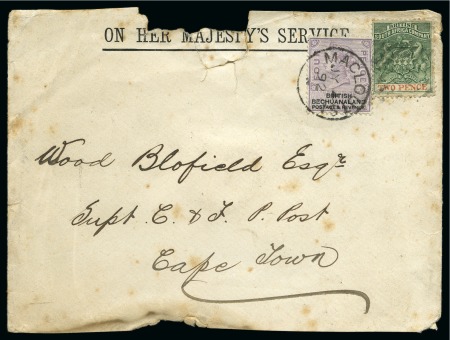 ON HER MAJESTY'S SERVICE
SOUTH AFRICA COMPANY
TWO PENCE
BRITISH
BECHUANALAND
POSTAGE & REVENUE
MACLO
Wood Blofield Esqre
Supt C. & F. P. Post
Cape Town